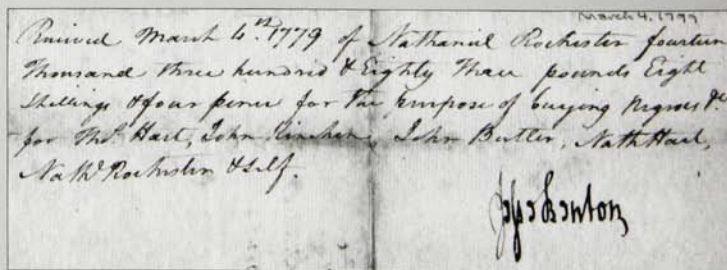 March 4, 1779
Received March 4th 1779 of Nathaniel Rochester fourteen
Thousand three hundred & Eighty Three pounds Eight
Shillings & four pence for the purpose of buying Negroes &c
for Thos. Hart, John Kinchen, John Butler, Nath Hart,
Nathl Rochester & Self.
Jesse Benton